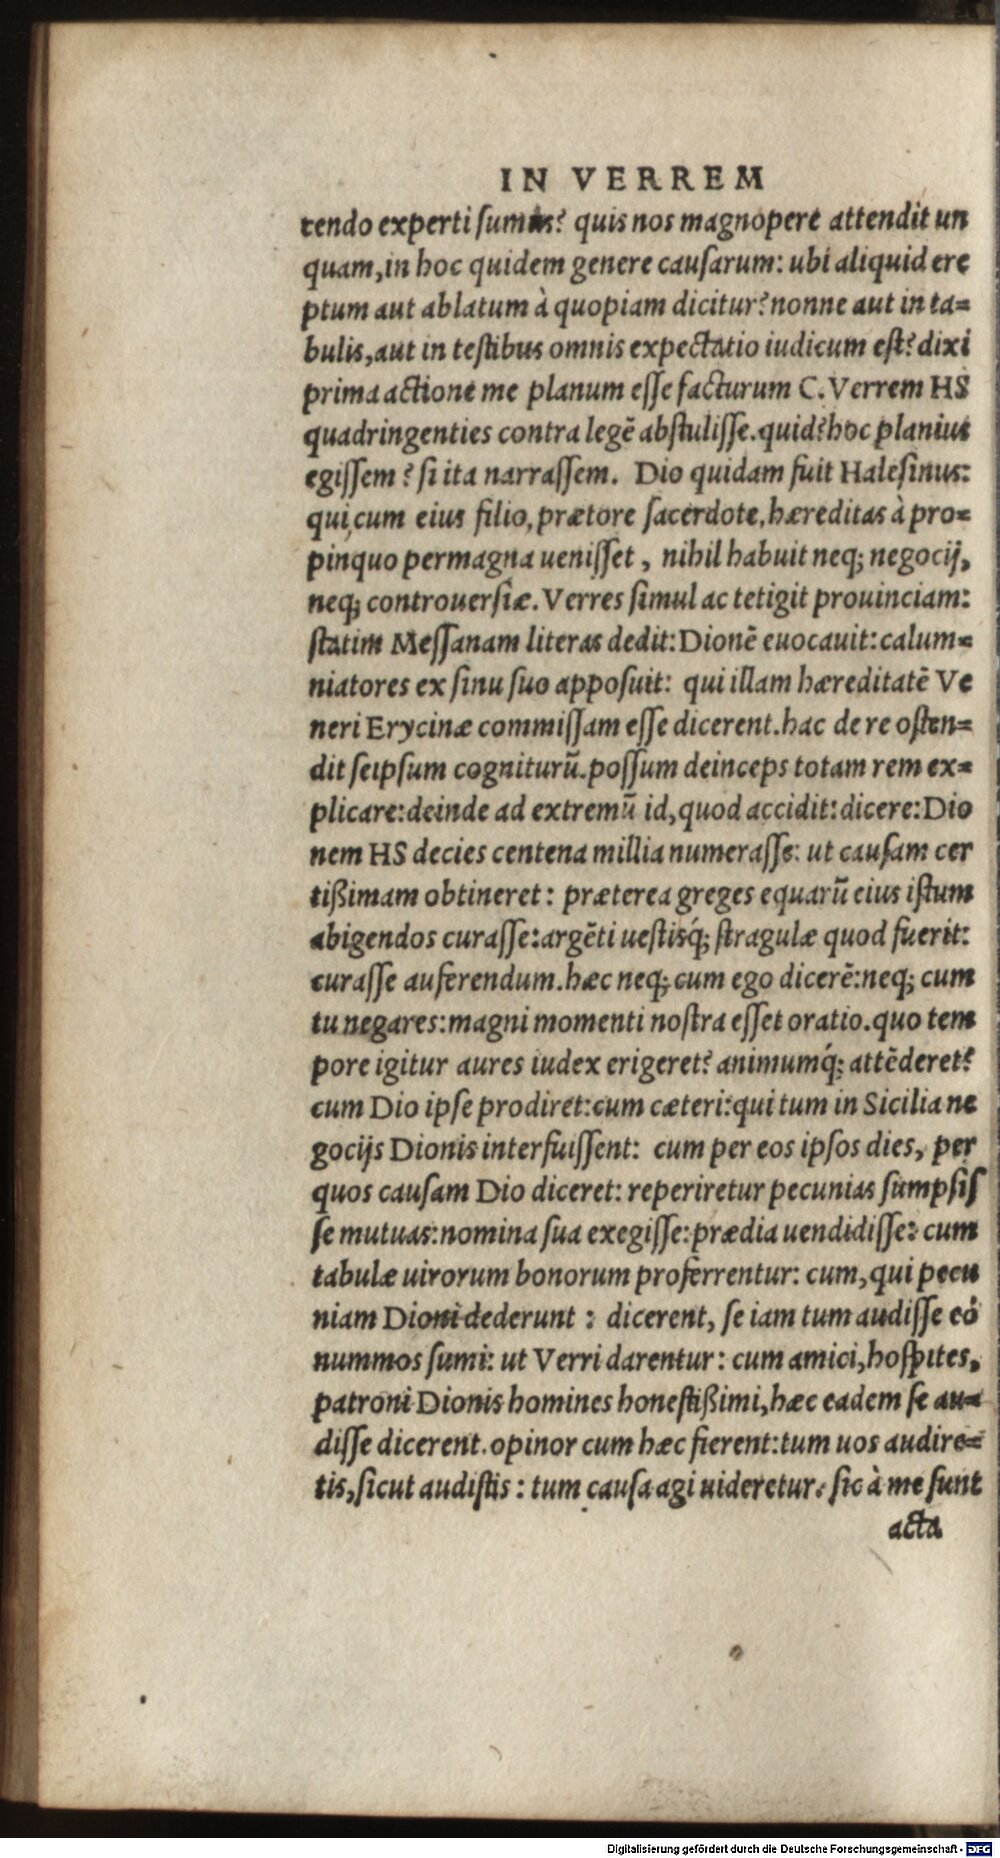 IN VERREM
tendo experti sumus? quis nos magnopere attendit un
quam, in hoc quidem genere causarum: ubi aliquid ere
ptum aut ablatum à quopiam dicitur? nonne aut in ta=
bulis, aut in testibus omnis expectatio iudicum est? dixi
prima actione me planum esse facturum C. Verrem HS
quadringenties contra legē abstulisse. quid? hoc planius
egissem? si ita narrassem. Dio quidam fuit Halesinus:
qui, cum eius filio, prætore sacerdote, hæreditas à pro=
pinquo permagna uenisset, nihil habuit neq; negocij,
neq; controuersiæ. Verres simul ac tetigit prouinciam:
statim Messanam literas dedit: Dionē euocauit: calum=
niatores ex sinu suo apposuit: qui illam hæreditatē Ve
neri Erycinæ commissam esse dicerent. hac de re osten=
dit seipsum cogniturū. possum deinceps totam rem ex=
plicare: deinde ad extremū id, quod accidit: dicere: Dio
nem HS decies centena millia numerasse: ut causam cer
tißimam obtineret: præterea greges equarū eius istum
abigendos curasse: argēti uestisq́; stragulæ quod fuerit:
curasse auferendum. hæc neq; cum ego dicerē: neq; cum
tu negares: magni momenti nostra esset oratio. quo tem
pore igitur aures iudex erigeret? animumq́; attēderet?
cum Dio ipse prodiret: cum cæteri: qui tum in Sicilia ne
gocijs Dionis interfuissent: cum per eos ipsos dies, per
quos causam Dio diceret: reperiretur pecunias sumpsis
se mutuas: nomina sua exegisse: prædia uendidisse: cum
tabulæ uirorum bonorum proferrentur: cum, qui pecu
niam Dioni dederunt: dicerent, se iam tum audisse eò
nummos sumi: ut Verri darentur: cum amici, hospites,
patroni Dionis homines honestißimi, hæc eadem se au=
disse dicerent. opinor cum hæc fierent: tum uos audire=
tis, sicut audistis: tum causa agi uideretur. sic à me sunt
acta
Digitalisierung gefördert durch die Deutsche Forschungsgemeinschaft - DFG